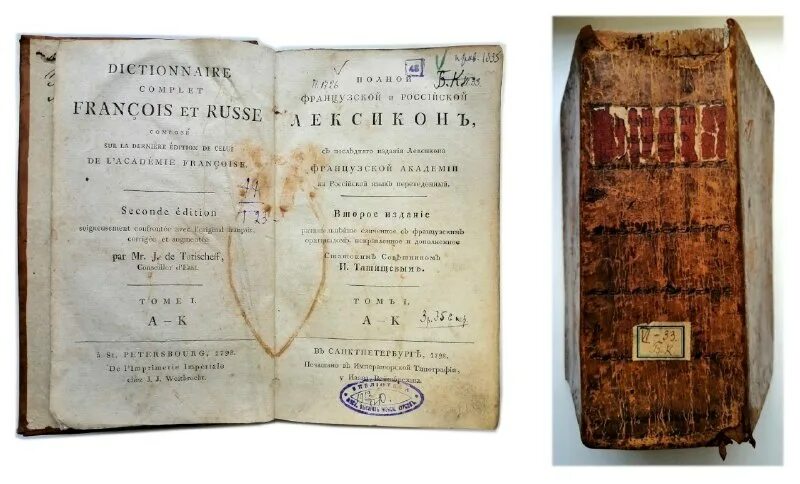 DICTIONNAIRE
COMPLET
FRANÇOIS ET RUSSE
COMPOSÉ
SUR LA DERNIÈRE ÉDITION DE CELUI
DE L'ACADÉMIE FRANÇOISE.
Seconde édition
soigneusement confrontée avec l'original français,
corrigée et augmentée
par Mr. J. de Tatischeff,
Conseiller d'Etat.
TOME I.
A – K
à St. PETERSBOURG, 1798.
De l'Imprimerie Impériale
chez J. J. Weitbrecht.
ПОЛНОЙ
ФРАНЦУЗСКОЙ и РОССІЙСКОЙ
ЛЕКСИКОНЪ,
съ послѣдняго изданія Лексикона
ФРАНЦУЗСКОЙ АКАДЕМІИ
на Россійской языкъ переведенный.
Второе изданіе
сличенное съ французскимъ
оригиналомъ, исправленное и дополненное
Статскимъ Совѣтникомъ
И. Татищевымъ.
ТОМЪ I.
А – К
ВЪ САНКТПЕТЕРБУРГѢ, 1798.
Печатано въ Императорской Типографіи,
у Ивана Вейтбрехта.
48
Б.К.
БИБЛІОТЕКА